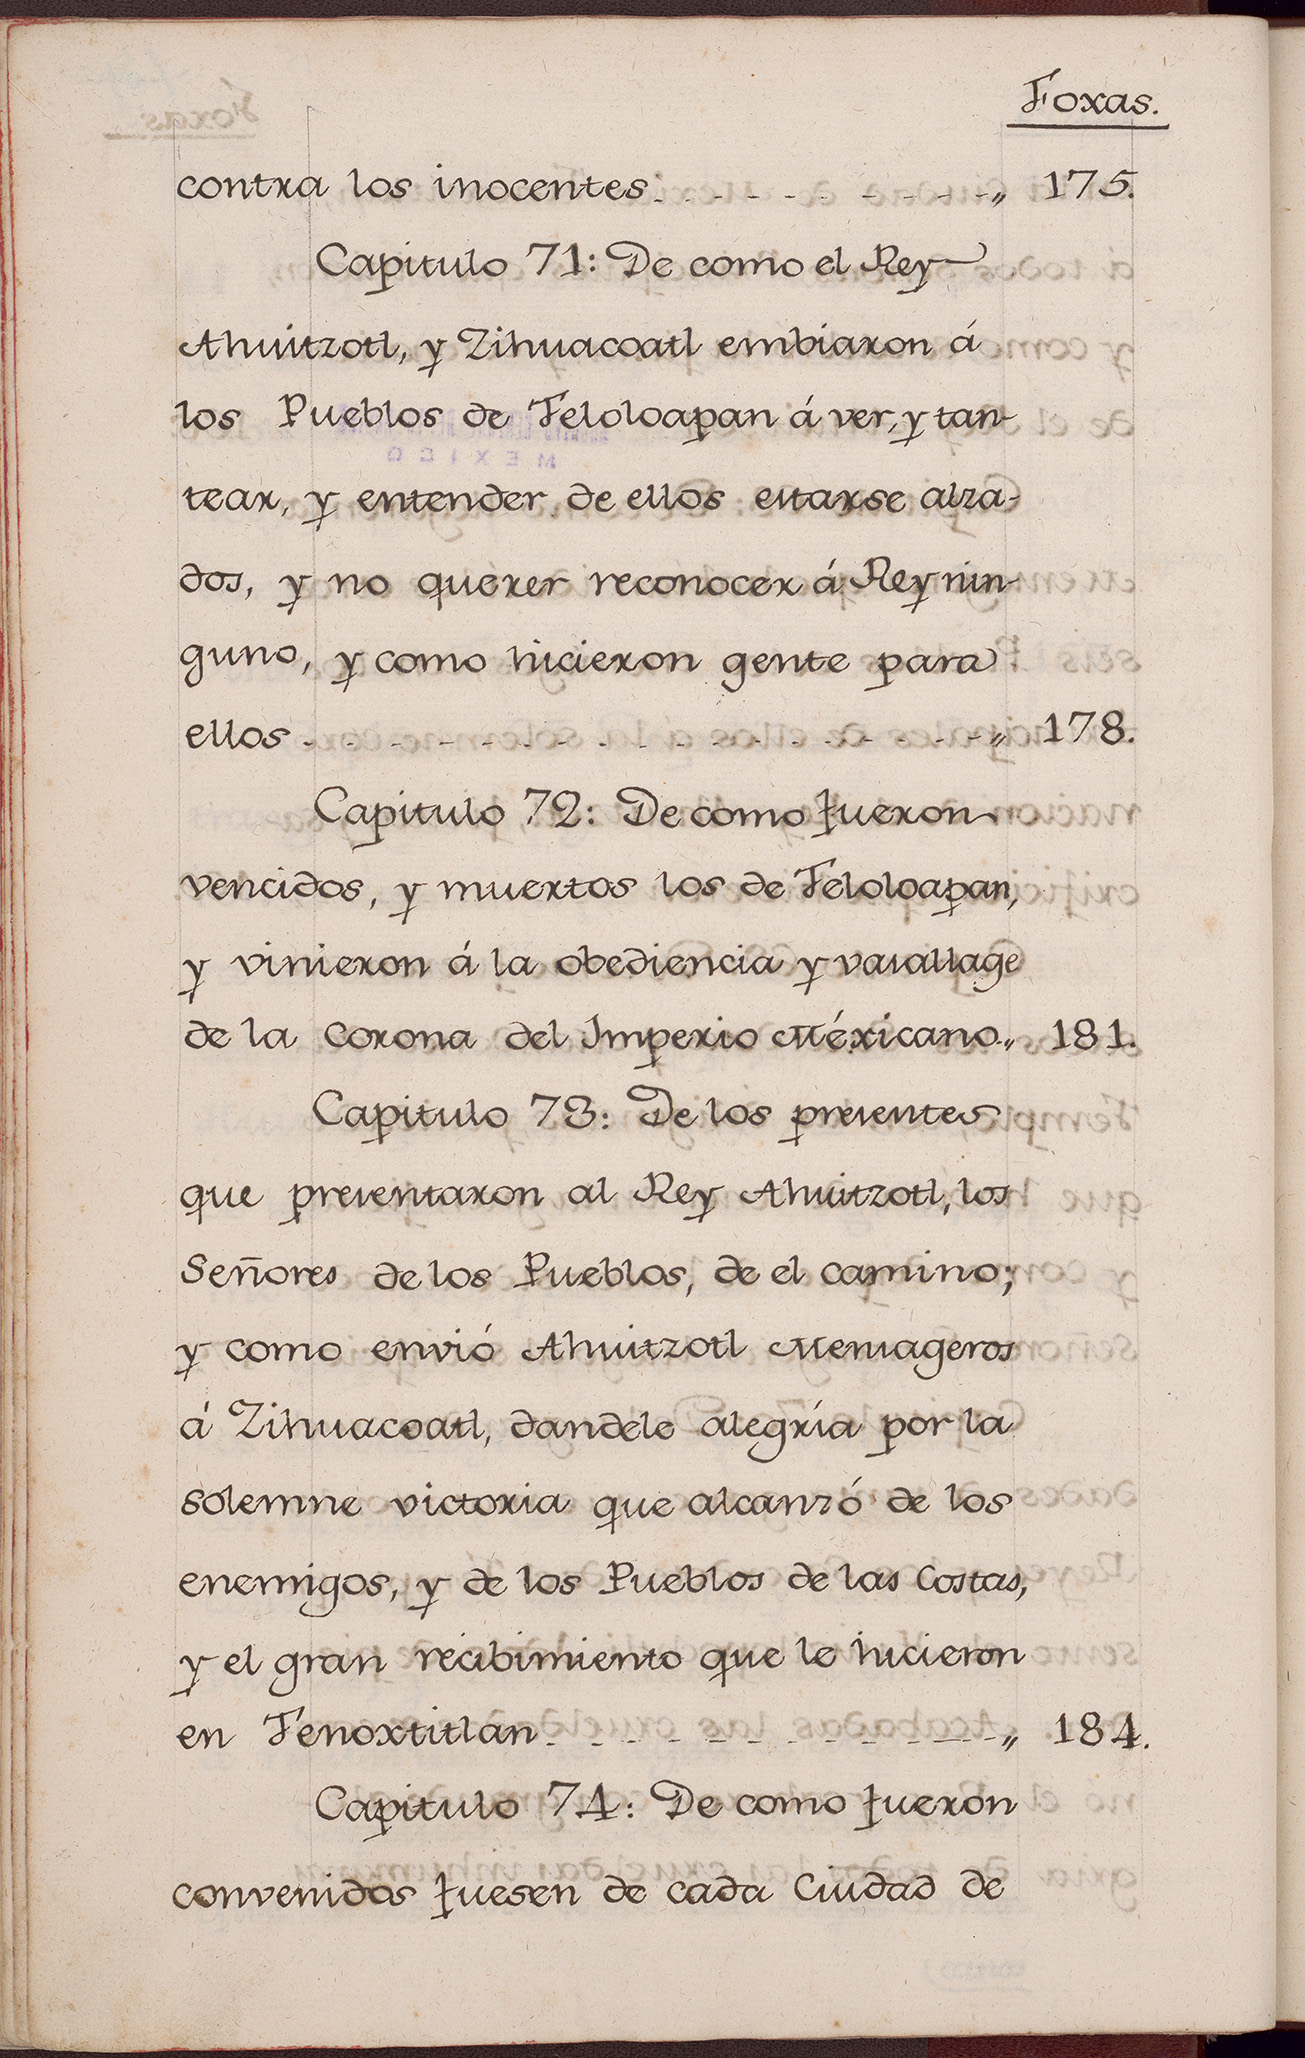 Foxas.
contra los inocentes. - - - - - - - - - „ 175.
Capitulo 71: De como el Rey
Ahuitzotl, y Zihuacoatl embiaron á
los Pueblos de Teloloapan á ver, y tan-
tear, y entender de ellos estarse alza-
dos, y no querer reconocer á Rey nin-
guno, y como hicieron gente para
ellos - - - - - - - - - - - - - - - - „ 178.
Capitulo 72: De como fueron
vencidos, y muertos los de Teloloapan,
y vinieron á la obediencia y vasallage
de la Corona del Imperio Méxicano. „ 181.
Capitulo 73: De los presentes
que presentaron al Rey Ahuitzotl, los
Señores de los Pueblos, de el camino;
y como envió Ahuitzotl Mensageros
á Zihuacoatl, dandele alegría por la
solemne victoria que alcanzó de los
enemigos, y de los Pueblos de las Costas,
y el gran recibimiento que le hicieron
en Tenoxtitlan - - - - - - - - - - - „ 184.
Capitulo 74: De como fueron
convenidos fuesen de cada Ciudad de